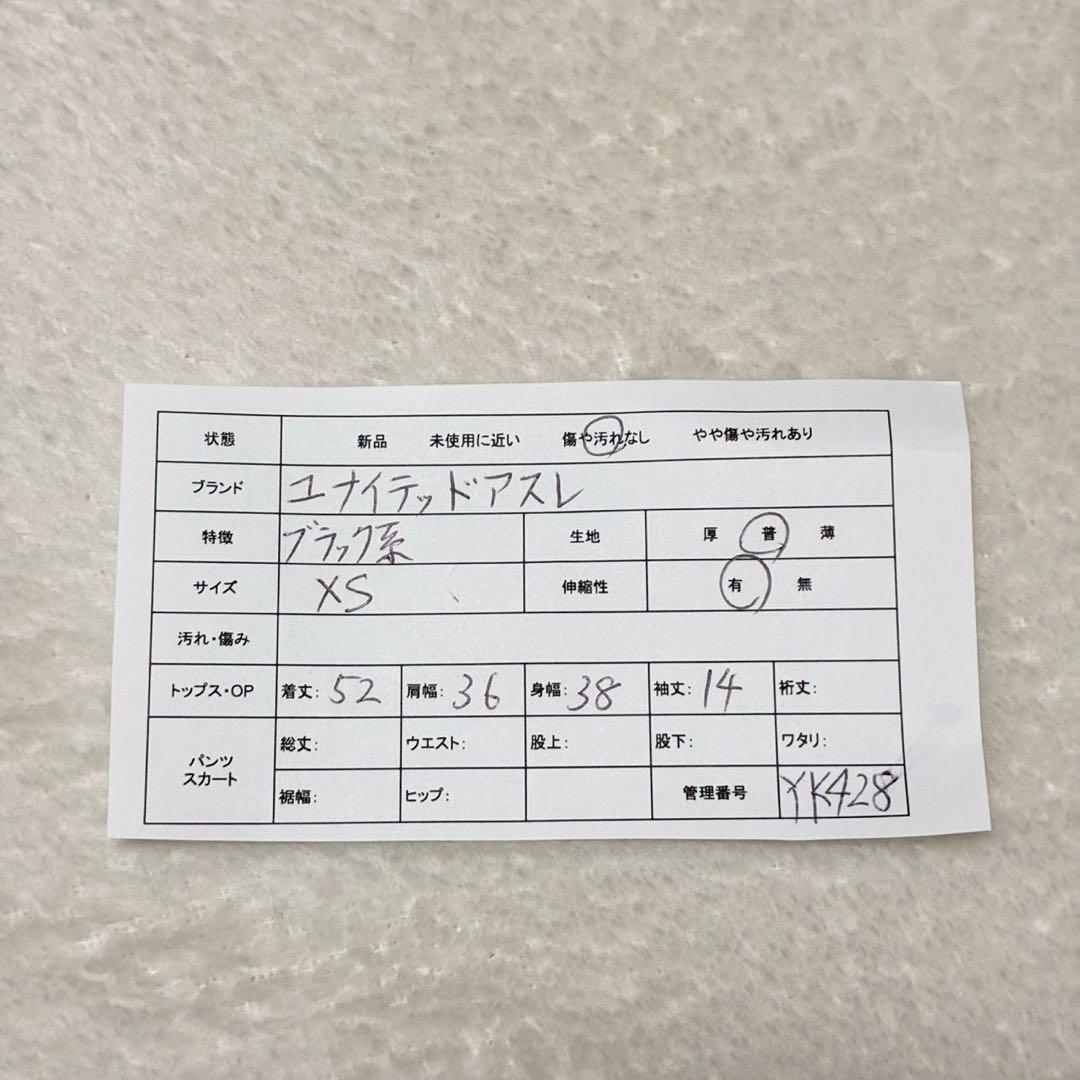 状態 新品 未使用に近い 傷や汚れなし やや傷や汚れあり
ブランド ユナイテッドアスレ
特徴 ブラック系 生地 厚 普 薄
サイズ XS 伸縮性 有 無
汚れ・傷み
トップス・OP 着丈: 52 肩幅: 36 身幅: 38 袖丈: 14 裄丈:
パンツ
スカート
総丈: ウエスト: 股上: 股下: ワタリ:
裾幅: ヒップ: 管理番号 YK428